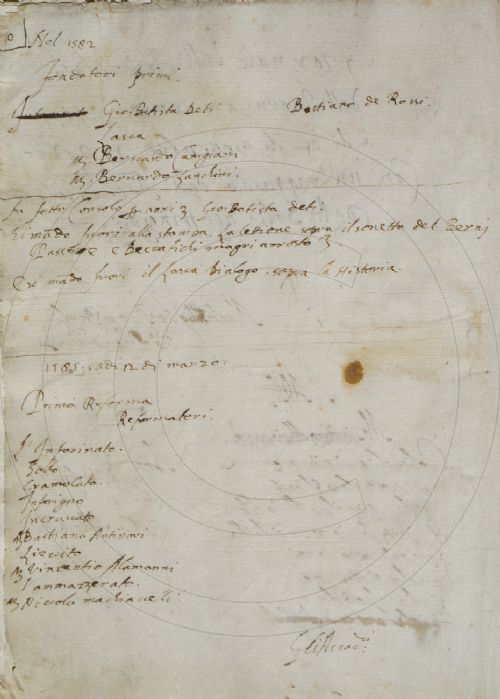 Nel 1582
fondatori primi.
Gio: Batista Deti Bastiano de Rossi.
Lasca
M Bernardo Canigiani
M. Bernardo Zanchini.
Fu fatto Consolo p anni 3 Gio: Batista deti
Si mādò fuori alla stampa. La letione sopra il sonetto del Berni
Passere e Beccafichi magri arrosto
Et mādò fuori il Lasca Dialogo. sopra la Historia.
1585. adi 12 di marzo.
Prima Reforma
Reformatori.
L'Infarinato.
Sollo
Gramolato.
Inferigno
Incruscato
M Bastiano Antinori
Lievito
M Vincentio Alamanni
Iammazzerat.
M Niccolo machiavelli.
Gli Accad:ci